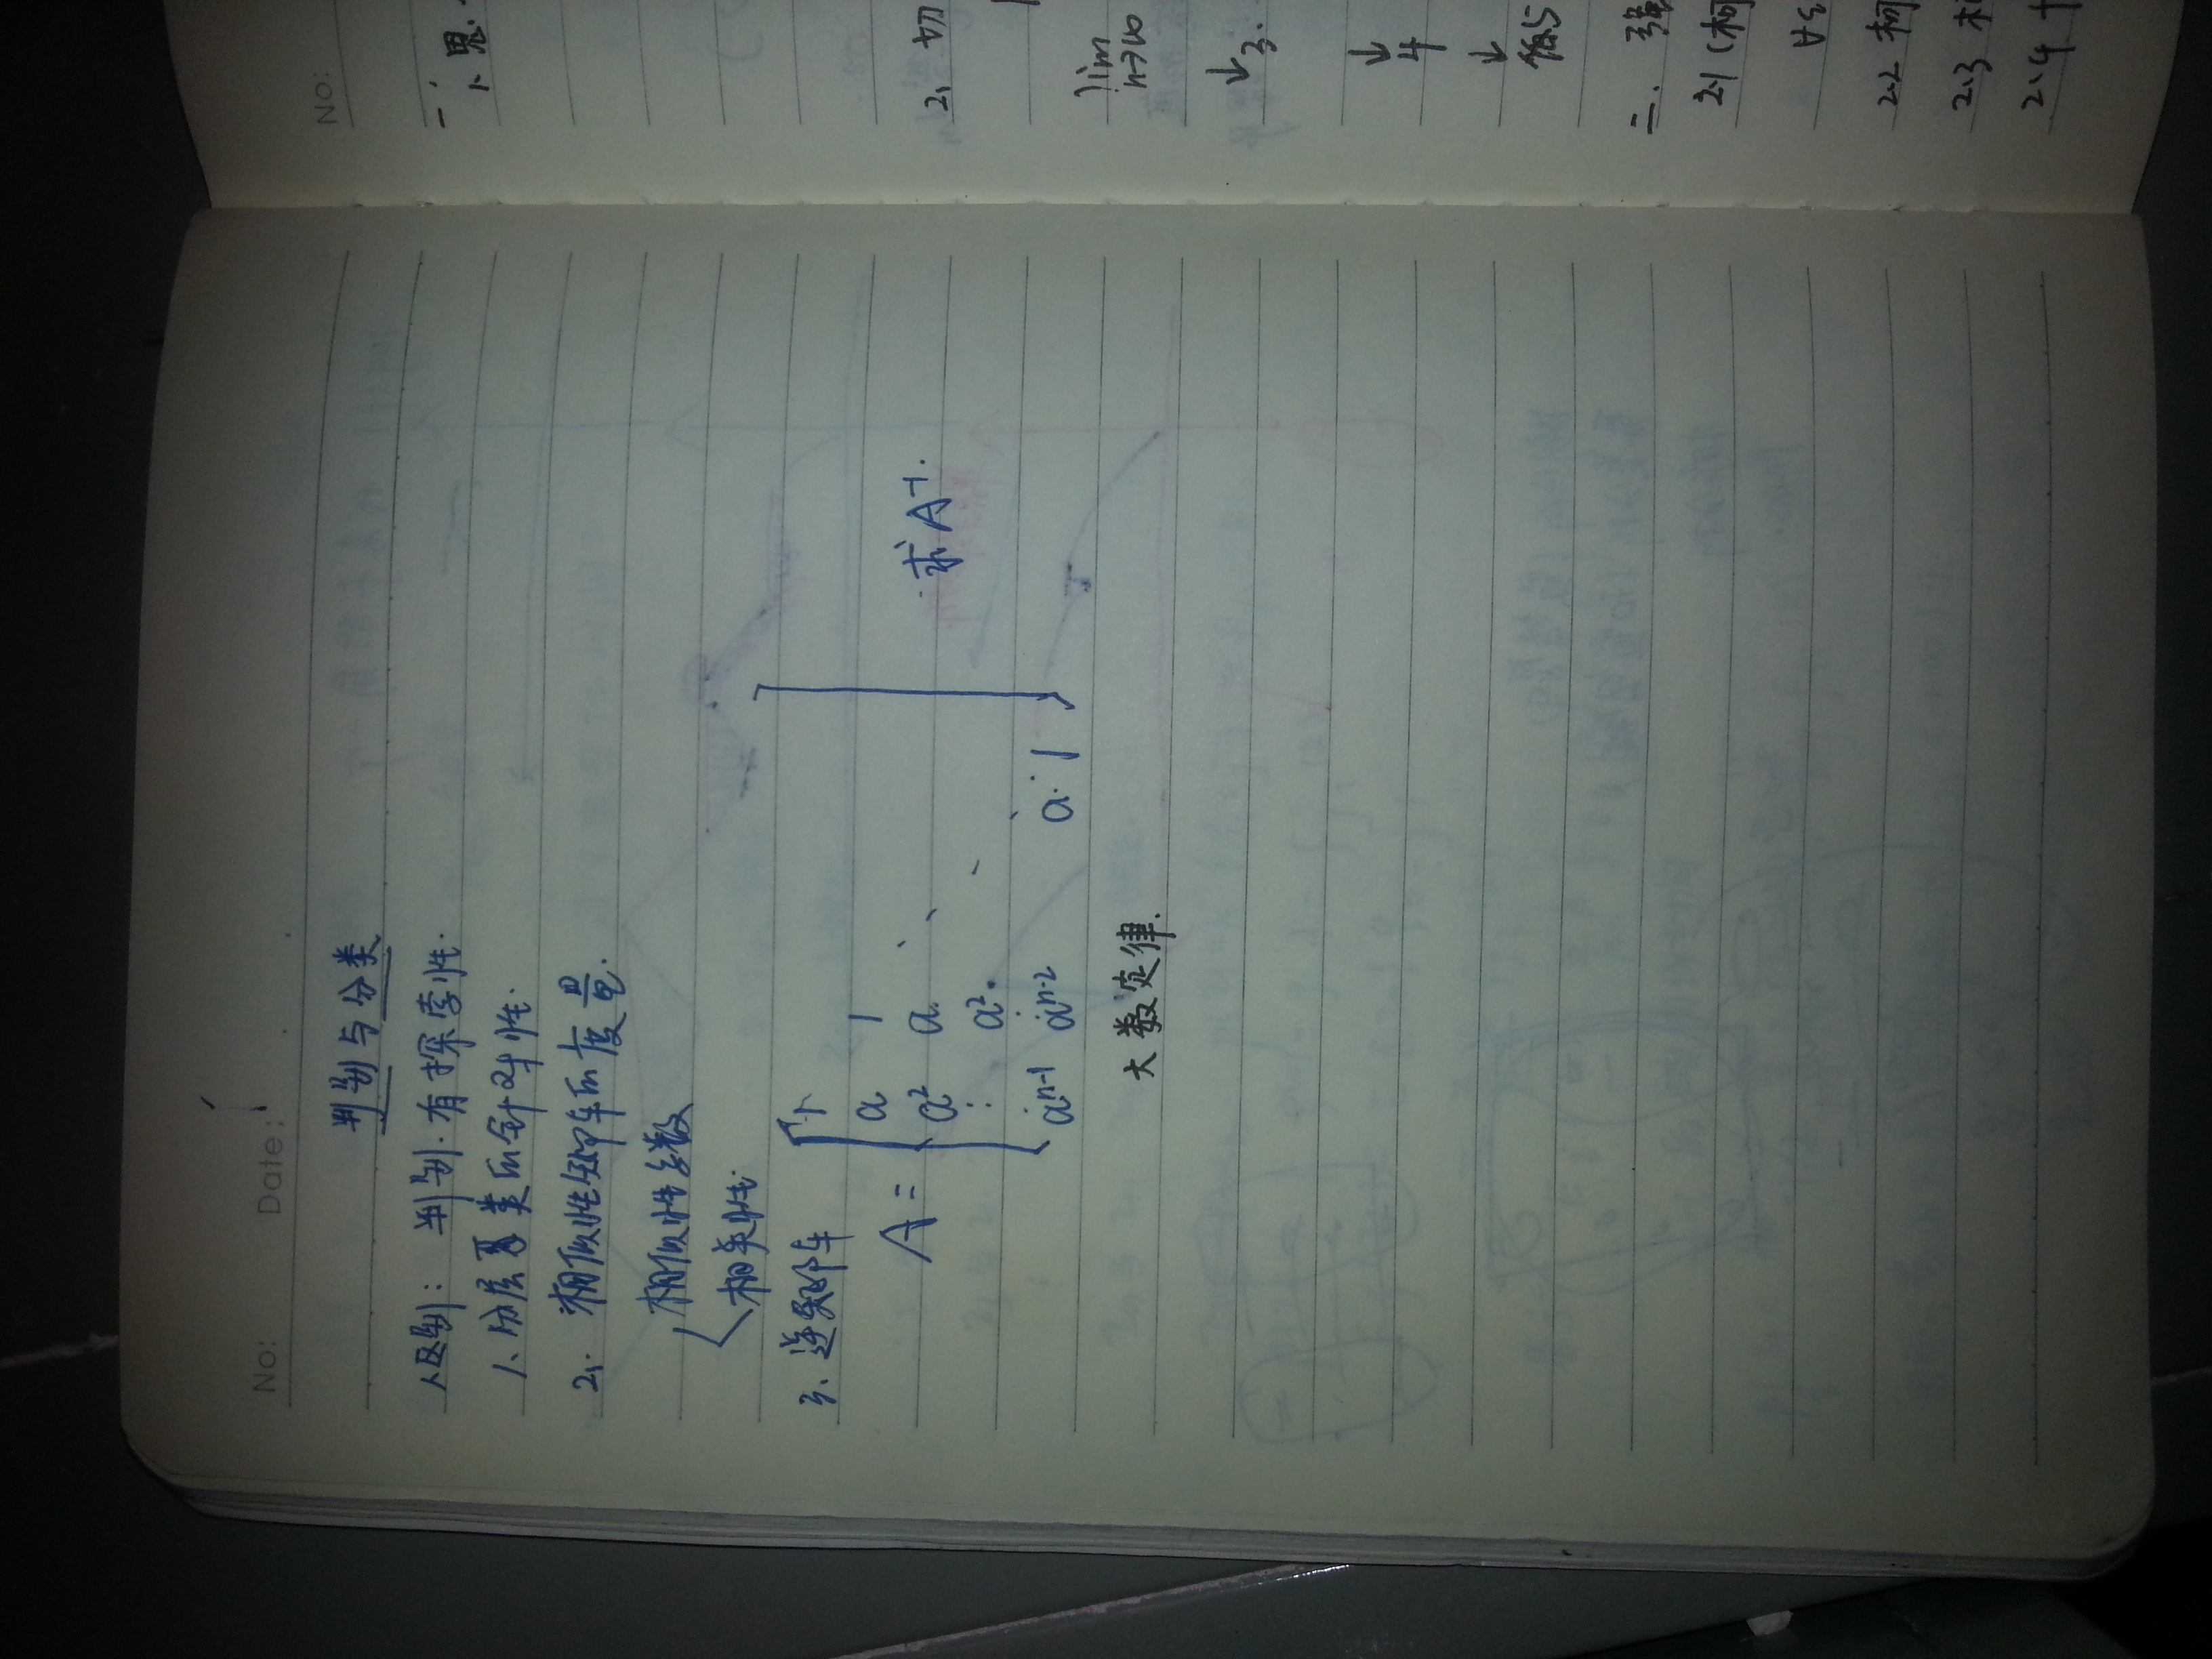 No: Date:
判别与分类
1、区别: 判别.有探索性.
1、分层聚类的针对性.
2、相似性矩阵的度量.
相似性系数
相关性.
3、逆矩阵
1
a 1
A = a² a. 求 A⁻¹.
⋮ a².
aⁿ⁻¹ aⁿ⁻² a. 1
大数定律.
No:
一、
1、思.
2、切
lim
n→∞
↓3.
↓
4
↓
二. 强
2.1 (柯
∀ε
2.2 柯
2.3
2.4